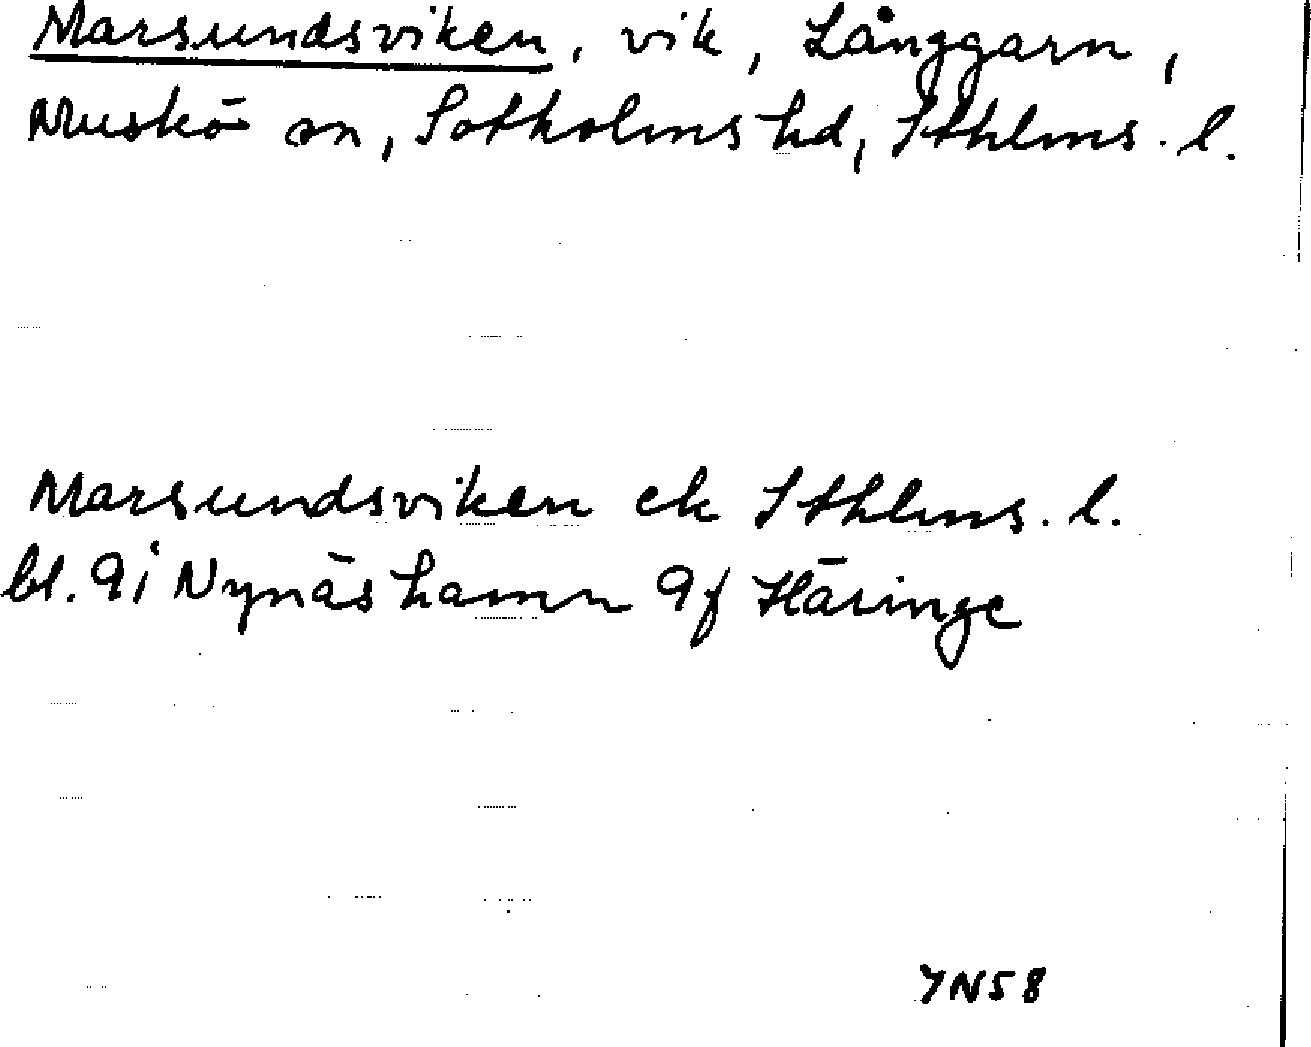 Marsundsviken, vik, Långgarn,
Muskö sn, Sotholms hd, Sthlms. l.
Marsundsviken ek Sthlms. l.
bl. 9i Nynäshamn 9f Häringe
YN58